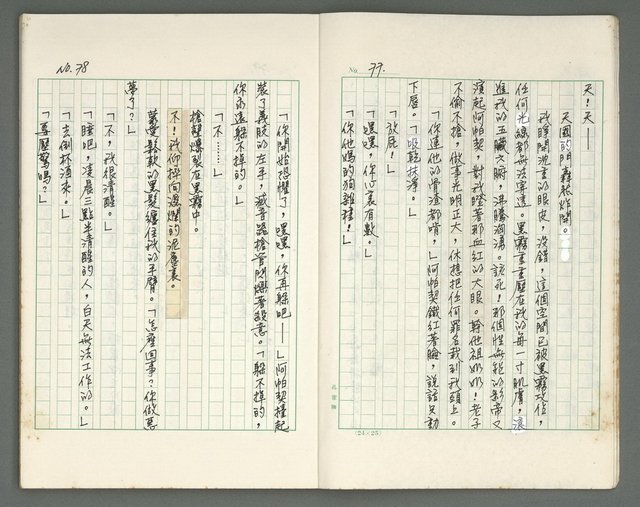 No. 77.
天!天——
天國的門轟然炸開。
我睜開沈重的眼皮,沒錯,這個空間已被黑霧攻佔,
任何光線都無法穿透。黑霧重重壓在我的每一寸肌膚,滾
進我的五臟六腑,沸騰洶湧。該死!那個性無能的影帝又
演起阿帕契,對我瞪著那血紅的大眼。幹他祖奶奶!老子
不偷不搶,做事光明正大,休想把任何罪名栽到我頭上。
「你連他的骨渣都啃,」阿帕契鐵紅著臉,說話只動
下唇。「吸乾抹淨。」
「放屁!」
「嘿嘿,你心裏有數。」
「你他媽的狗雜種!」
(24×25)
No. 78
「你開始恐懼了,嘿嘿,你再躲吧——」阿帕契撞起
裝了義肢的左手,滅音器槍管閃爍著殺意。「躲不掉的,
你永遠躲不掉的。」
「不……」
槍聲爆裂在黑霧中。
不!我仰摔向濕爛的泥塵裏。
蒙雯鬆軟的黑髮纏住我的手臂。「怎麼回事?你做惡
夢了?」
「不,我很清醒。」
「睡吧,凌晨三點半清醒的人,白天無法工作的。」
「去倒杯酒來。」
「要壓驚嗎?」